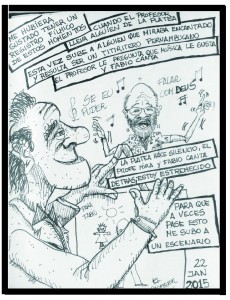 ME HUBIERA
GUSTADO TENER UN
REGISTRO FÍLMICO
DE ESTOS MOMENTOS
CUANDO EL PROFESOR
LLEVA ALGUIEN DE LA PLATEA
ESTA VEZ SUBE A ALGUIEN QUE MIRABA ENCANTADO
Y RESULTA SER UN TITIRITERO PERNAMBUCANO
EL PROFESOR LE PREGUNTA QUE MÚSICA LE GUSTA
Y FABIO CANTA
SE EU
PUDER
FALAR
COM DEUS
LA PLATEA HACE SILENCIO, EL
PROFE MIRA Y FABIO CANTA
DETRÁS, ESTOY ESTREMECIDO
PARA QUE
A VECES
PASE ESTO
ME SUBO A
UN ESCENARIO
22
JAN
2015